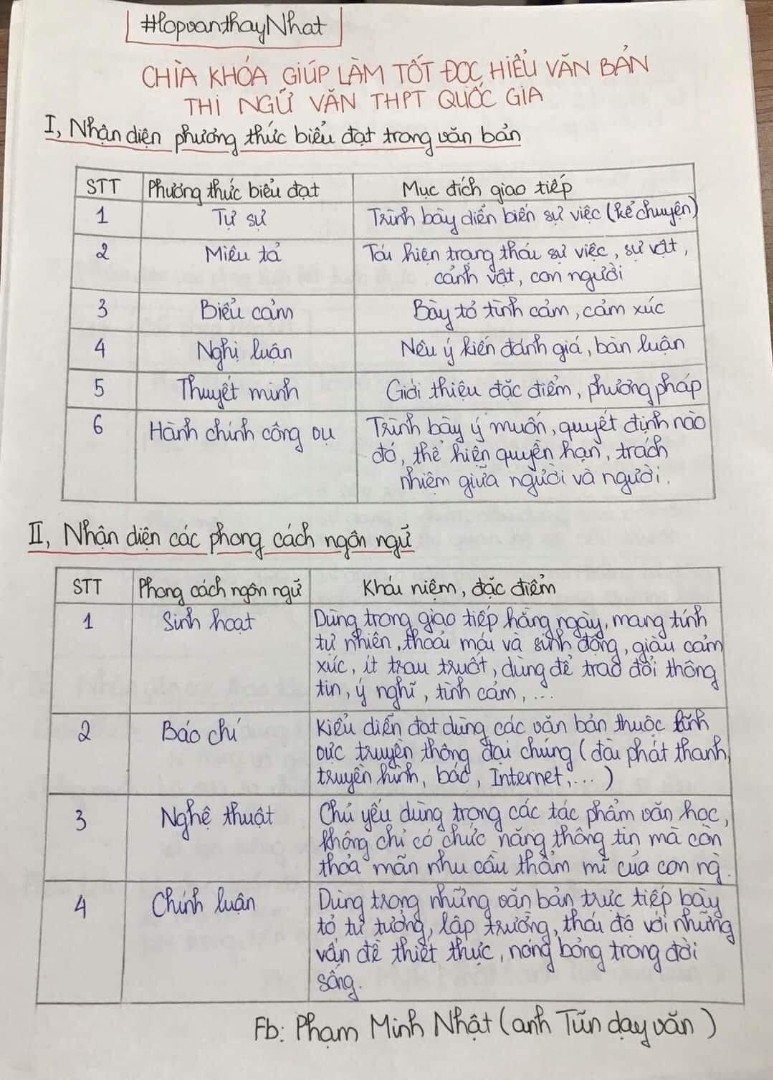 #lopvanthayNhat
CHÌA KHÓA GIÚP LÀM TỐT ĐỌC HIỂU VĂN BẢN
THI NGỮ VĂN THPT QUỐC GIA
I, Nhận diện phương thức biểu đạt trong văn bản
STT Phương thức biểu đạt Mục đích giao tiếp
1 Tự sự Trình bày diễn biến sự việc (kể chuyện)
2 Miêu tả Tái hiện trạng thái sự việc, sự vật,
cảnh vật, con người
3 Biểu cảm Bày tỏ tình cảm, cảm xúc
4 Nghị luận Nêu ý kiến đánh giá, bàn luận
5 Thuyết minh Giới thiệu đặc điểm, phương pháp
6 Hành chính công vụ Trình bày ý muốn, quyết định nào
đó, thể hiện quyền hạn, trách
nhiệm giữa người và người.
II, Nhận diện các phong cách ngôn ngữ
STT Phong cách ngôn ngữ Khái niệm, đặc điểm
1 Sinh hoạt Dùng trong giao tiếp hằng ngày, mang tính
tự nhiên, thoải mái và sinh động, giàu cảm
xúc, ít trau truốt, dùng để trao đổi thông
tin, ý nghĩ, tình cảm,...
2 Báo chí Kiểu diễn đạt dùng các văn bản thuộc lĩnh
vực truyền thông đại chúng (đài phát thanh,
truyền hình, báo, Internet,...)
3 Nghệ thuật Chủ yếu dùng trong các tác phẩm văn học,
không chỉ có chức năng thông tin mà còn
thỏa mãn nhu cầu thẩm mĩ của con ng`.
4 Chính luận Dùng trong những văn bản trực tiếp bày
tỏ tư tưởng, lập trường, thái độ với những
vấn đề thiết thực, nóng bỏng trong đời
sống.
Fb: Phạm Minh Nhật (anh Tũn dạy văn)